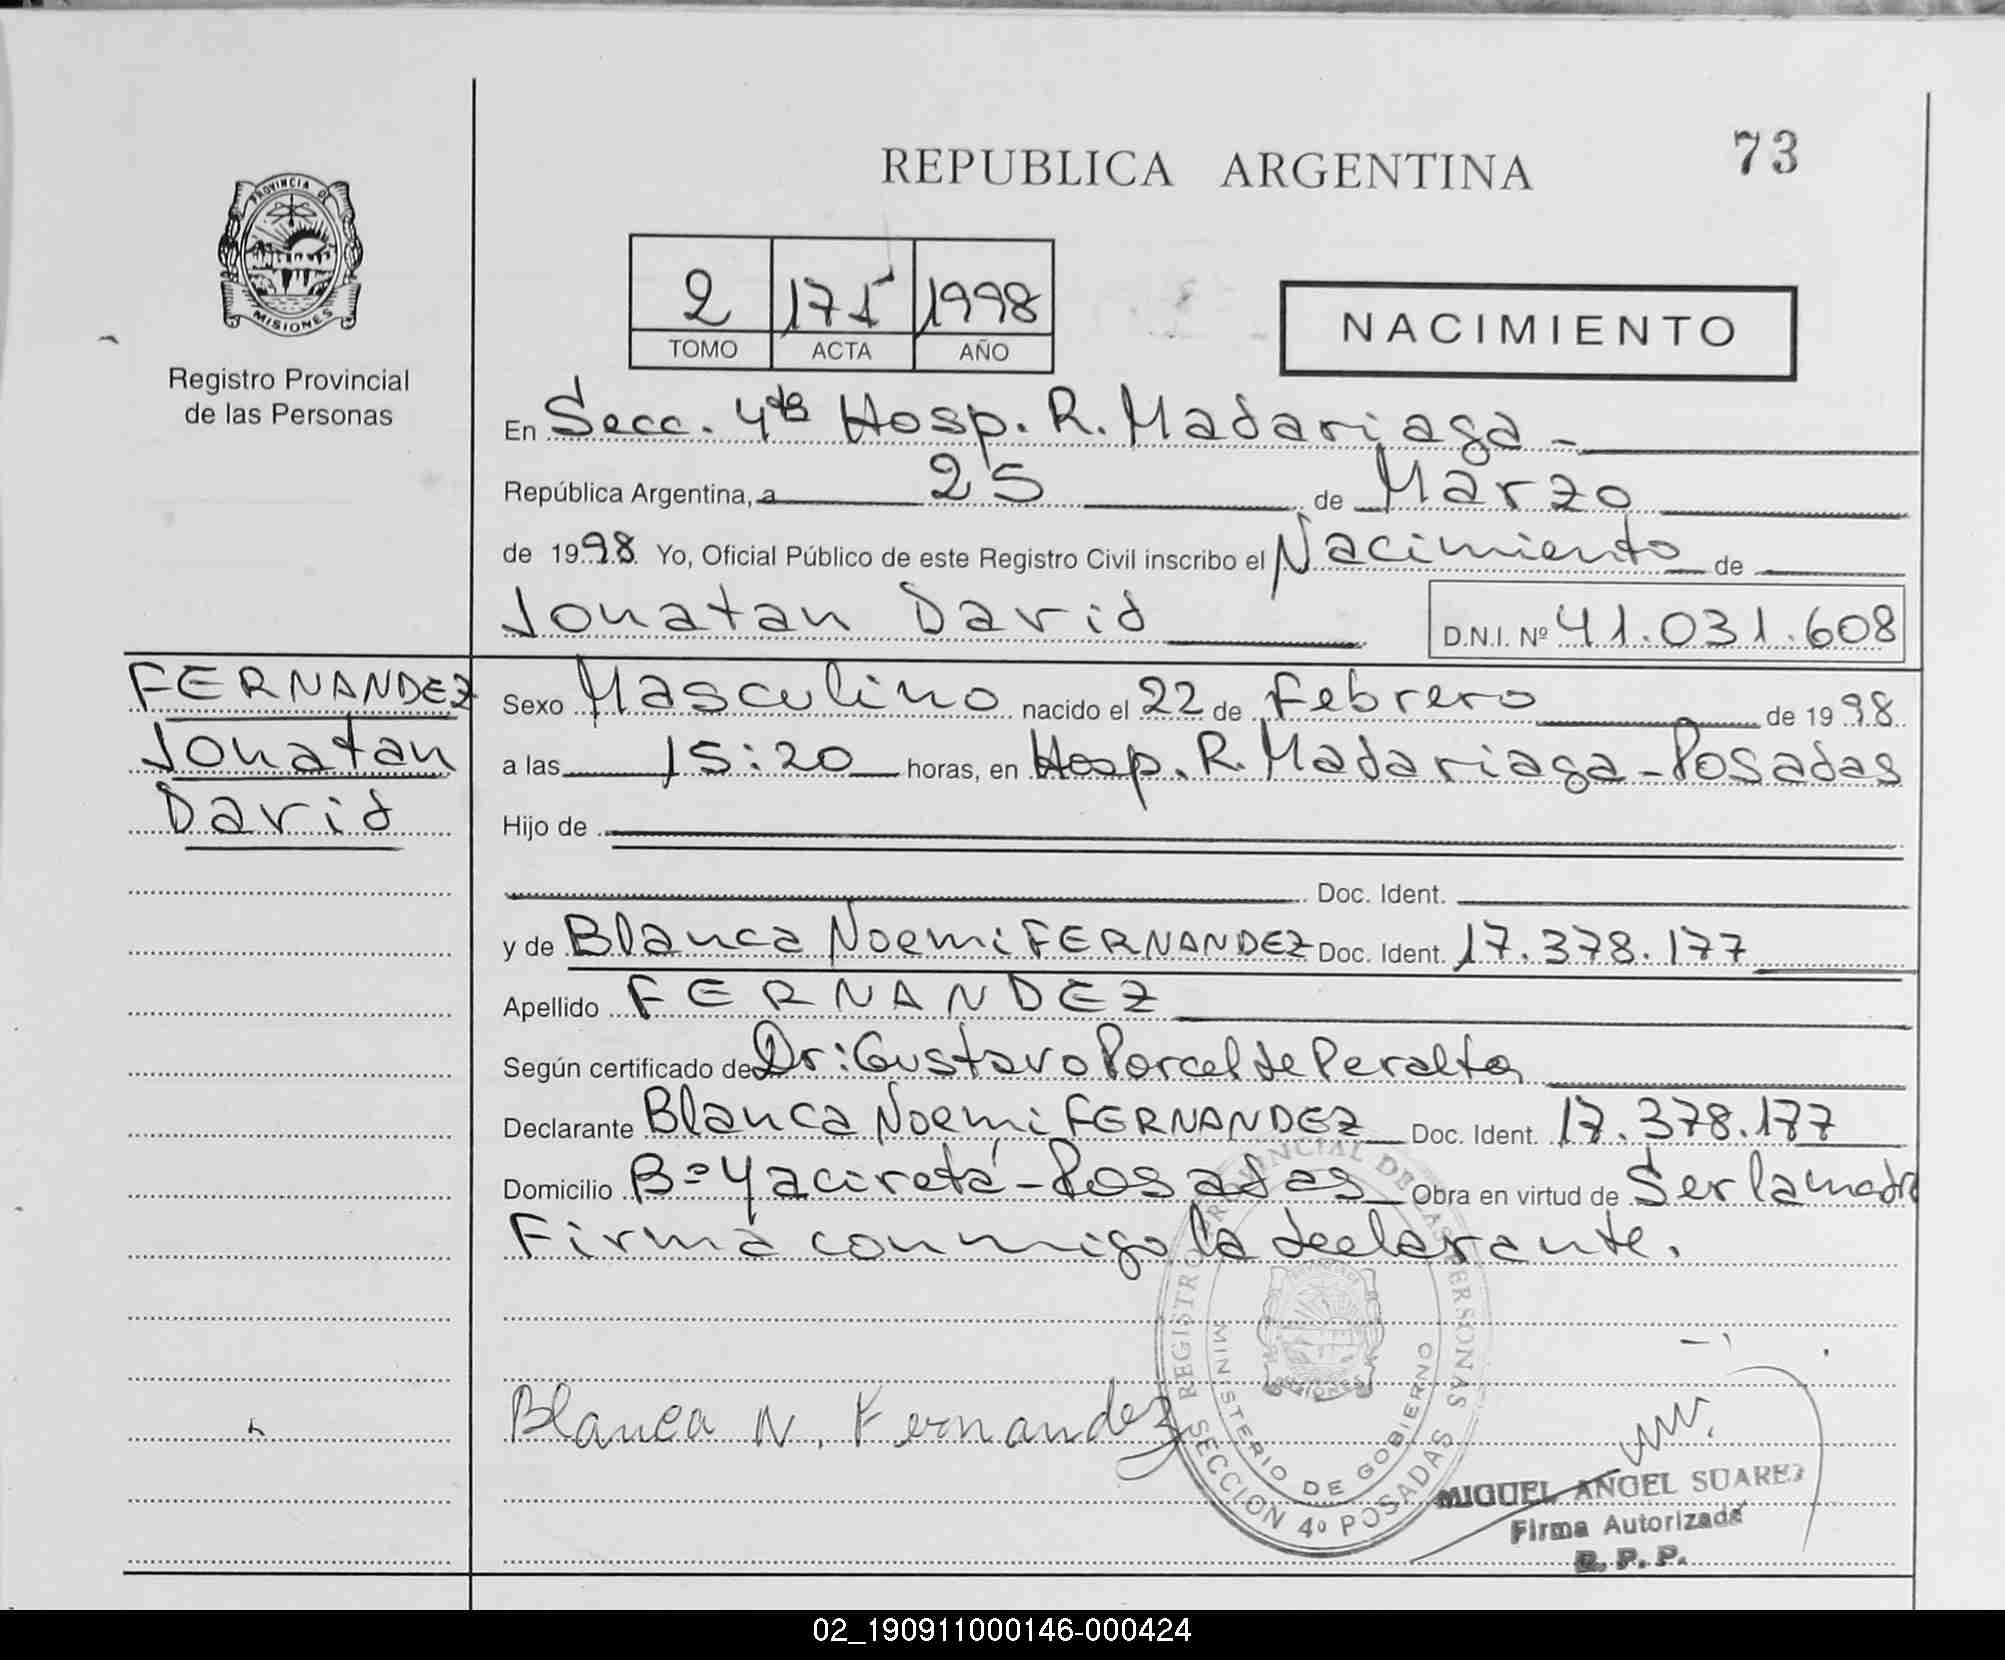 REPUBLICA ARGENTINA
73
PROVINCIA DE
MISIONES
Registro Provincial
de las Personas
2 171 1998
TOMO ACTA AÑO
NACIMIENTO
En Secc. 4ta Hosp. R. Madariaga -
República Argentina, a 25 de Marzo
de 1998 Yo, Oficial Público de este Registro Civil inscribo el Nacimiento de
Jonatan David D.N.I. Nº 41.031.608
FERNANDEZ
Jonatan
David
Sexo Masculino nacido el 22 de Febrero de 1998
a las 15:20 horas, en Hosp. R. Madariaga - Posadas
Hijo de
Doc. Ident.
y de Blanca Noemi FERNANDEZ Doc. Ident. 17.378.177
Apellido FERNANDEZ
Según certificado de Dr: Gustavo Porcel de Peralta
Declarante Blanca Noemi FERNANDEZ Doc. Ident. 17.378.177
Domicilio Bº Yacireta - Posadas Obra en virtud de Ser la madre
Firma conmigo la declarante.
REGISTRO PROVINCIAL DE LAS PERSONAS
MINISTERIO DE GOBIERNO
SECCION 4º POSADAS
MISIONES
Blanca N. Fernandez
MIGUEL ANGEL SUAREZ
Firma Autorizada
R. P. P.
02_190911000146-000424